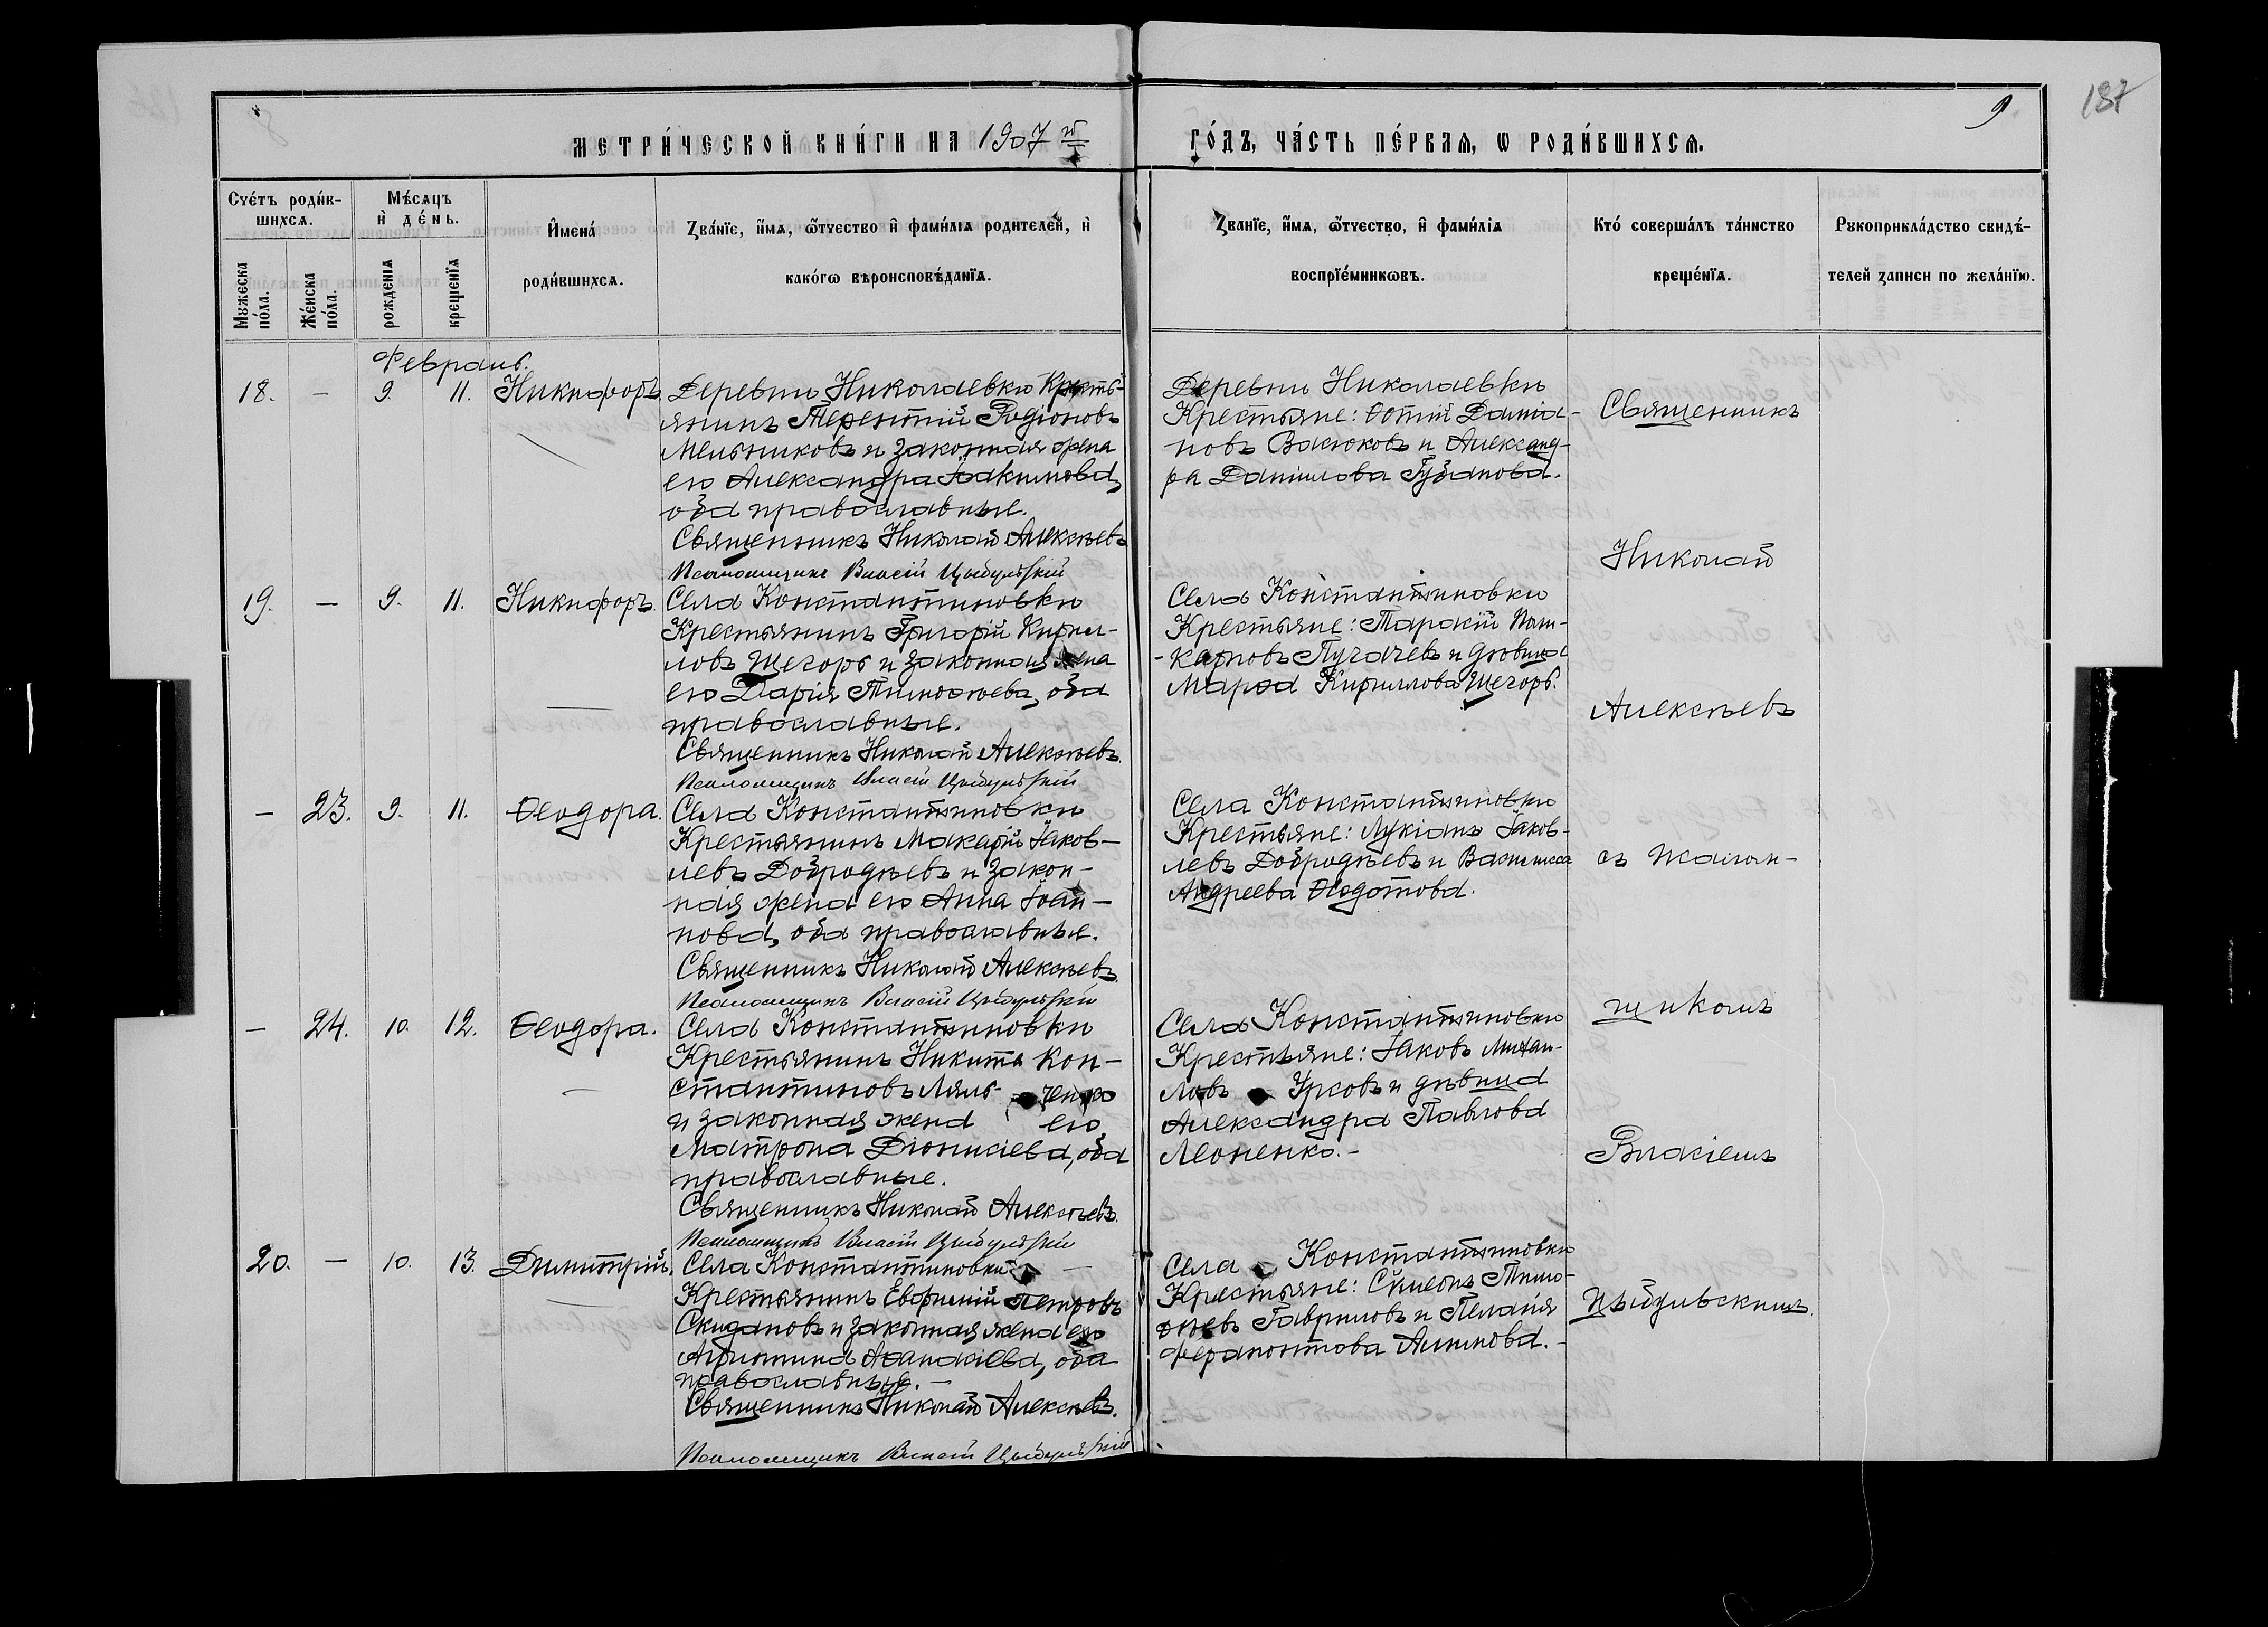 187
9
МЕТРИ́ЧЕСКОЙ КНИ́ГИ НА 1907 й
ГО́ДЪ, ЧА́СТЬ ПЕ́РВАЯ, Ѡ РОДИ́ВШИХСЯ.
Счетъ роди́в-
шихся.
Му́жеска по́ла.
Же́нска по́ла.
Мѣ́сяцъ и де́нь.
рожденія
крещенїя
Имена́ роди́вшихся.
Зва́нїе, и́мя, ѻ҆́тчество и҆ фами́лїя родителей, и҆
како́гѡ вѣроисповѣ́данїя.
Зва́нїе, и́мя, ѻ҆́тчество, и҆ фами́лїя
воспрїе́мниковъ.
Кто́ соверша́лъ та́инство
креще́нїя.
Рукоприкла́дство свидѣ́-
телей записи по жела́нїю.
Февраль.
18. — 9. 11. Никифоръ.
Деревни Николаевки Кресть-
янинъ Терентій Родіоновъ
Мельниковъ и законная жена
его Александра Іоакимова,
оба православные.
Священникъ Николай Алексѣевъ
Псаломщикъ Власій Цыбульскій
Деревни Николаевки
Крестьяне: Ѳотій Даміа-
новъ Васюковъ и Александ-
ра Даніилова Гузанова.
Священникъ
Николай
Алексѣевъ
съ псалом-
щикомъ
Власіемъ
Цыбульскимъ.
19. — 9. 11. Никифоръ.
Села Константиновки
Крестьянинъ Григорій Кирил-
ловъ Щегорь и законная жена
его Дарія Тимоѳеева, оба
православные.
Священникъ Николай Алексѣевъ.
Псаломщикъ Власій Цыбульскій
Села Константиновки
Крестьяне: Тарасій
-карповъ Пугачевъ и дѣвица
Марѳа Кириллова Щегорь.
— 23. 9. 11. Ѳеодора.
Села Константиновки
Крестьянинъ Макарій Іаков-
левъ Добродѣевъ и закон-
ная жена его Анна Іоан-
нова, оба православные.
Священникъ Николай Алексѣевъ
Псаломщикъ Власій Цыбульскій
Села Константиновки
Крестьяне: Лукіанъ Іаков-
левъ Добродѣевъ и Василисса
Андреева Ѳедотова.
— 24. 10. 12. Ѳеодора.
Села Константиновки
Крестьянинъ Никита Кон-
стантиновъ Ляль- ченко
и законная жена его
Матрона Діонисіева, оба
православные.
Священникъ Николай Алексѣевъ.
Псаломщикъ Власій Цыбульскій
Села Константиновки
Крестьяне: Іаковъ Михаи-
ловъ Урсовъ и дѣвица
Александра Павлова
Леоненко.-
20. — 10. 13. Димитрій.
Села Константиновки —
Крестьянинъ Евфимій Петровъ
Скидановъ и законная жена его
Агриппина Аѳанасіева, оба
православные. —
Священникъ Николай Алексѣевъ.
Псаломщикъ Власій Цыбульскій
Села Константиновки
Крестьяне: Сѵмеонъ Тимо-
ѳеевъ Гавриловъ и Пелагія
Ферапонтова Алимова.-